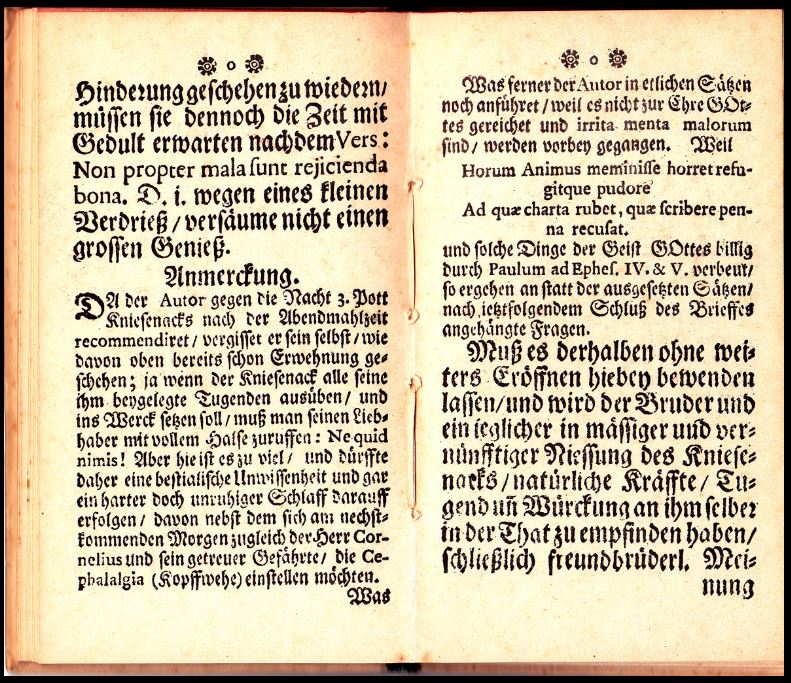 o
Hinderung geschehen zu wiedern/
müssen sie dennoch die Zeit mit
Gedult erwarten nach dem Vers:
Non propter mala sunt rejicienda
bona. D. i. wegen eines kleinen
Verdrieß/versäume nicht einen
grossen Genieß.
Anmerckung.
DA der Autor gegen die Nacht 3. Pott
Kniesenacks nach der Abendmahlzeit
recommendiret/vergisset er sein selbst/wie
davon oben bereits schon Erwehnung ge-
schehen; ja wenn der Kniesenack alle seine
ihm beygelegte Tugenden ausüben/ und
ins Werck setzen soll/muß man seinen Lieb-
haber mit vollem Halse zuruffen: Ne quid
nimis! Aber hie ist es zu viel/ und dürffte
daher eine bestialische Unwissenheit und gar
ein harter doch unruhiger Schlaff darauff
erfolgen/ davon nebst dem sich am nechst-
kommenden Morgen zugleich der Herr Cor-
nelius und sein getreuer Gefährte/ die Ce-
phalalgia (Kopffwehe) einstellen möchten.
Was
o
Was ferner der Autor in etlichen Sätzen
noch anführet/weil es nicht zur Ehre GOt-
tes gereichet und irrita menta malorum
sind/ werden vorbey gegangen. Weil
Horum Animus meminisse horret refu-
gitque pudore
Ad quæ charta rubet, quæ scribere pen-
na recusat.
und solche Dinge der Geist GOttes billig
durch Paulum ad Ephes. IV. & V. verbeut/
so ergehen an statt der ausgesetzten Sätzen/
nach ietztfolgendem Schluß des Brieffes
angehängte Fragen.
Muß es derhalben ohne wei-
ters Eröffnen hiebey bewenden
lassen/und wird der Bruder und
ein ieglicher in mässiger und ver-
nünfftiger Niessung des Kniese-
nacks/natürliche Kräffte/ Tu-
gend uñ Würckung an ihm selber
in der That zu empfinden haben/
schließlich freundbrüderl. Mei-
nung